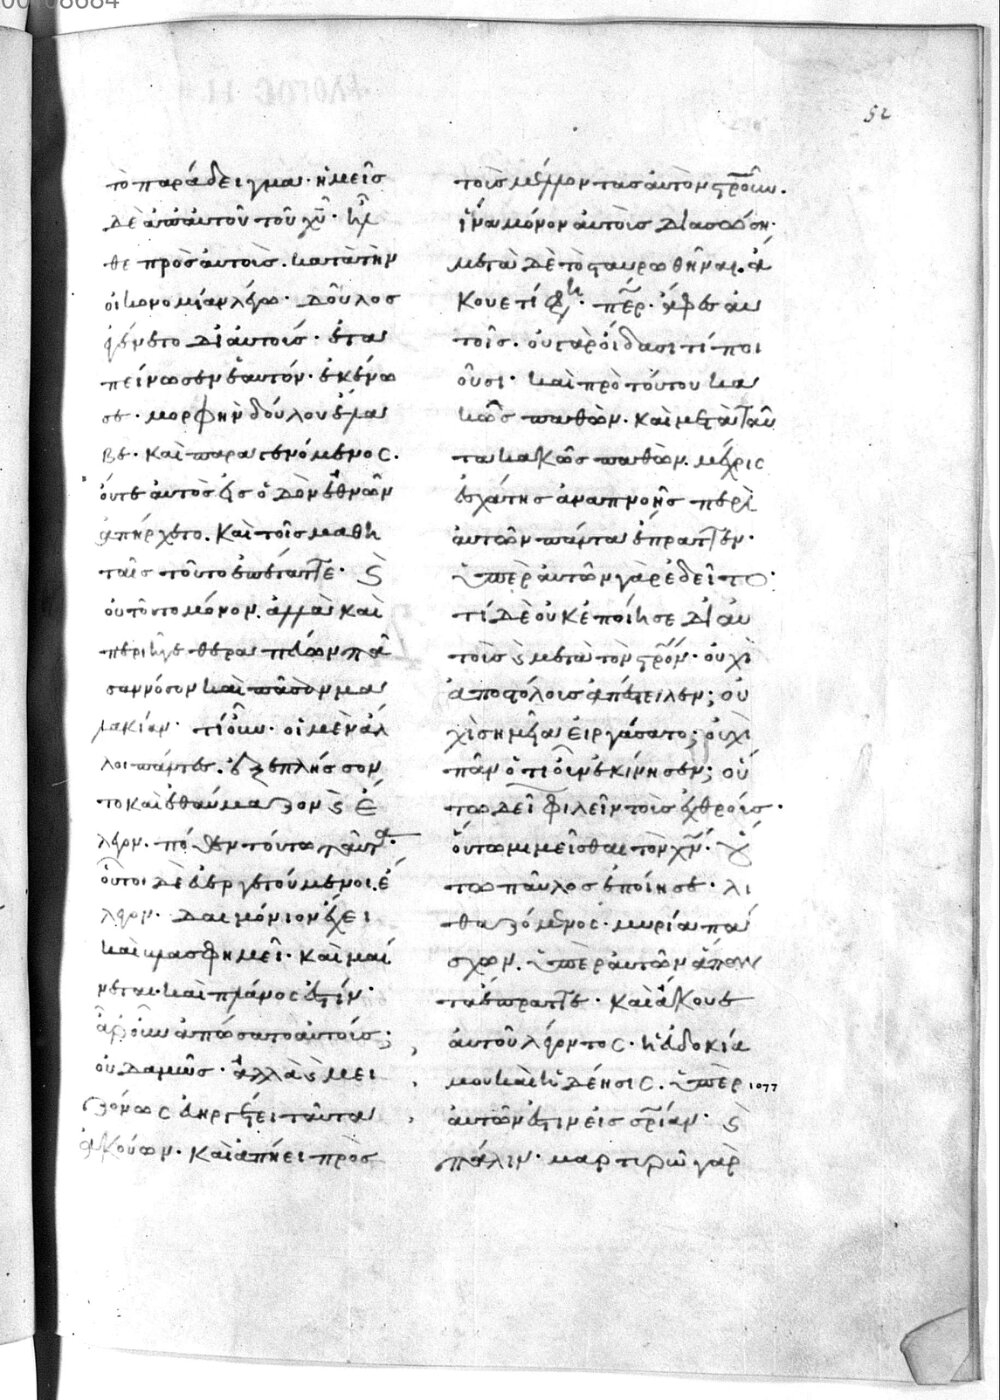 52
τὸ παράδειγμα· ἡμεῖς
δὲ ἀπ' αὐτοῦ τοῦ χῦ· ἦλ
θε πρὸς αὐτοὺς. κατὰ τὴν
οἰκονομίαν λέγω· δοῦλος
ἐγένετο δι' αὐτούς· ἐτα
πείνωσεν ἑαυτόν· ἐκένω
σε· μορφὴν δούλου ἔλα
βε· καὶ παραγενόμενος.
οὔτε αὐτὸς εἰς ὁδὸν ἐθνῶν
ἀπήρχετο. καὶ τοῖς μαθη
ταῖς τοῦτο ἐπέταττε· καὶ
οὐ τοῦτο μόνον. ἀλλὰ καὶ
περιῆγε θεραπεύων πᾶ
σαν νόσον καὶ πᾶσαν μα
λακίαν· τί οὖν· οἱ μὲν ἄλ
λοι πάντες. ἐξεπλήσσον
το καὶ ἐθαύμαζον καὶ ἔ
λεγον. πόθεν τούτω ταῦτα·
οὗτοι δὲ εὐεργετούμενοι. ἔ
λεγον· δαιμόνιον ἔχει
καὶ βλασφημεῖ· καὶ μαί
νεται· καὶ πλάνος ἐστίν·
ἆρ' οὖν ἀπώσατο αὐτούς;
οὐδαμῶς· ἀλλὰ καὶ μει
ζόνως εὐηργέτει ταῦτα
ἀκούων· καὶ ἀπήει πρὸς
τοὺς μέλλοντας αὐτὸν σροῦν.
ἵνα μόνον αὐτοὺς διασώση·
μετὰ δὲ τὸ σταυρωθῆναι. ἄ
κουε τί φη· περ· ἄφες αὐ
τοῖς. οὐ γὰρ οἴδασι τί ποι
οῦσι· καὶ πρὸ τούτου κα
κῶς παθὼν· καὶ μετὰ ταῦ
τα κακῶς παθὼν. μέχρις
ἐσχάτης ἀναπνοῆς περὶ
αὐτῶν πάντα ἔπραττεν·
ὑπὲρ αὐτῶν γὰρ ἐδεῖτο·
τί δὲ οὐκ ἐποίησε δι' αὐ
τοὺς καὶ μετὰ τὸν σρόν· οὐχὶ
ἀποστόλους ἀπέστειλεν; οὐ
χὶ σημεῖα εἰργάσατο; οὐχὶ
πᾶν ὁτιοῦν ἐκίνησεν; οὕ
τω δεῖ φιλεῖν τοὺς ἐχθρούς·
οὕτω μιμεῖσθαι τὸν χν· οὕ
τω παῦλος ἐποίησε· λι
θαζόμενος· μυρία πά
σχων. ὑπὲρ αὐτῶν ἅπαν
τα ἔπραττε· καὶ ἄκουε
αὐτοῦ λέγοντος· ἡ εὐδοκία
μου καὶ ἡ δέησις. ὑπὲρ
αὐτῶν ἐστιν εἰς σρίαν· καὶ
πάλιν· μαρτυρῶ γὰρ